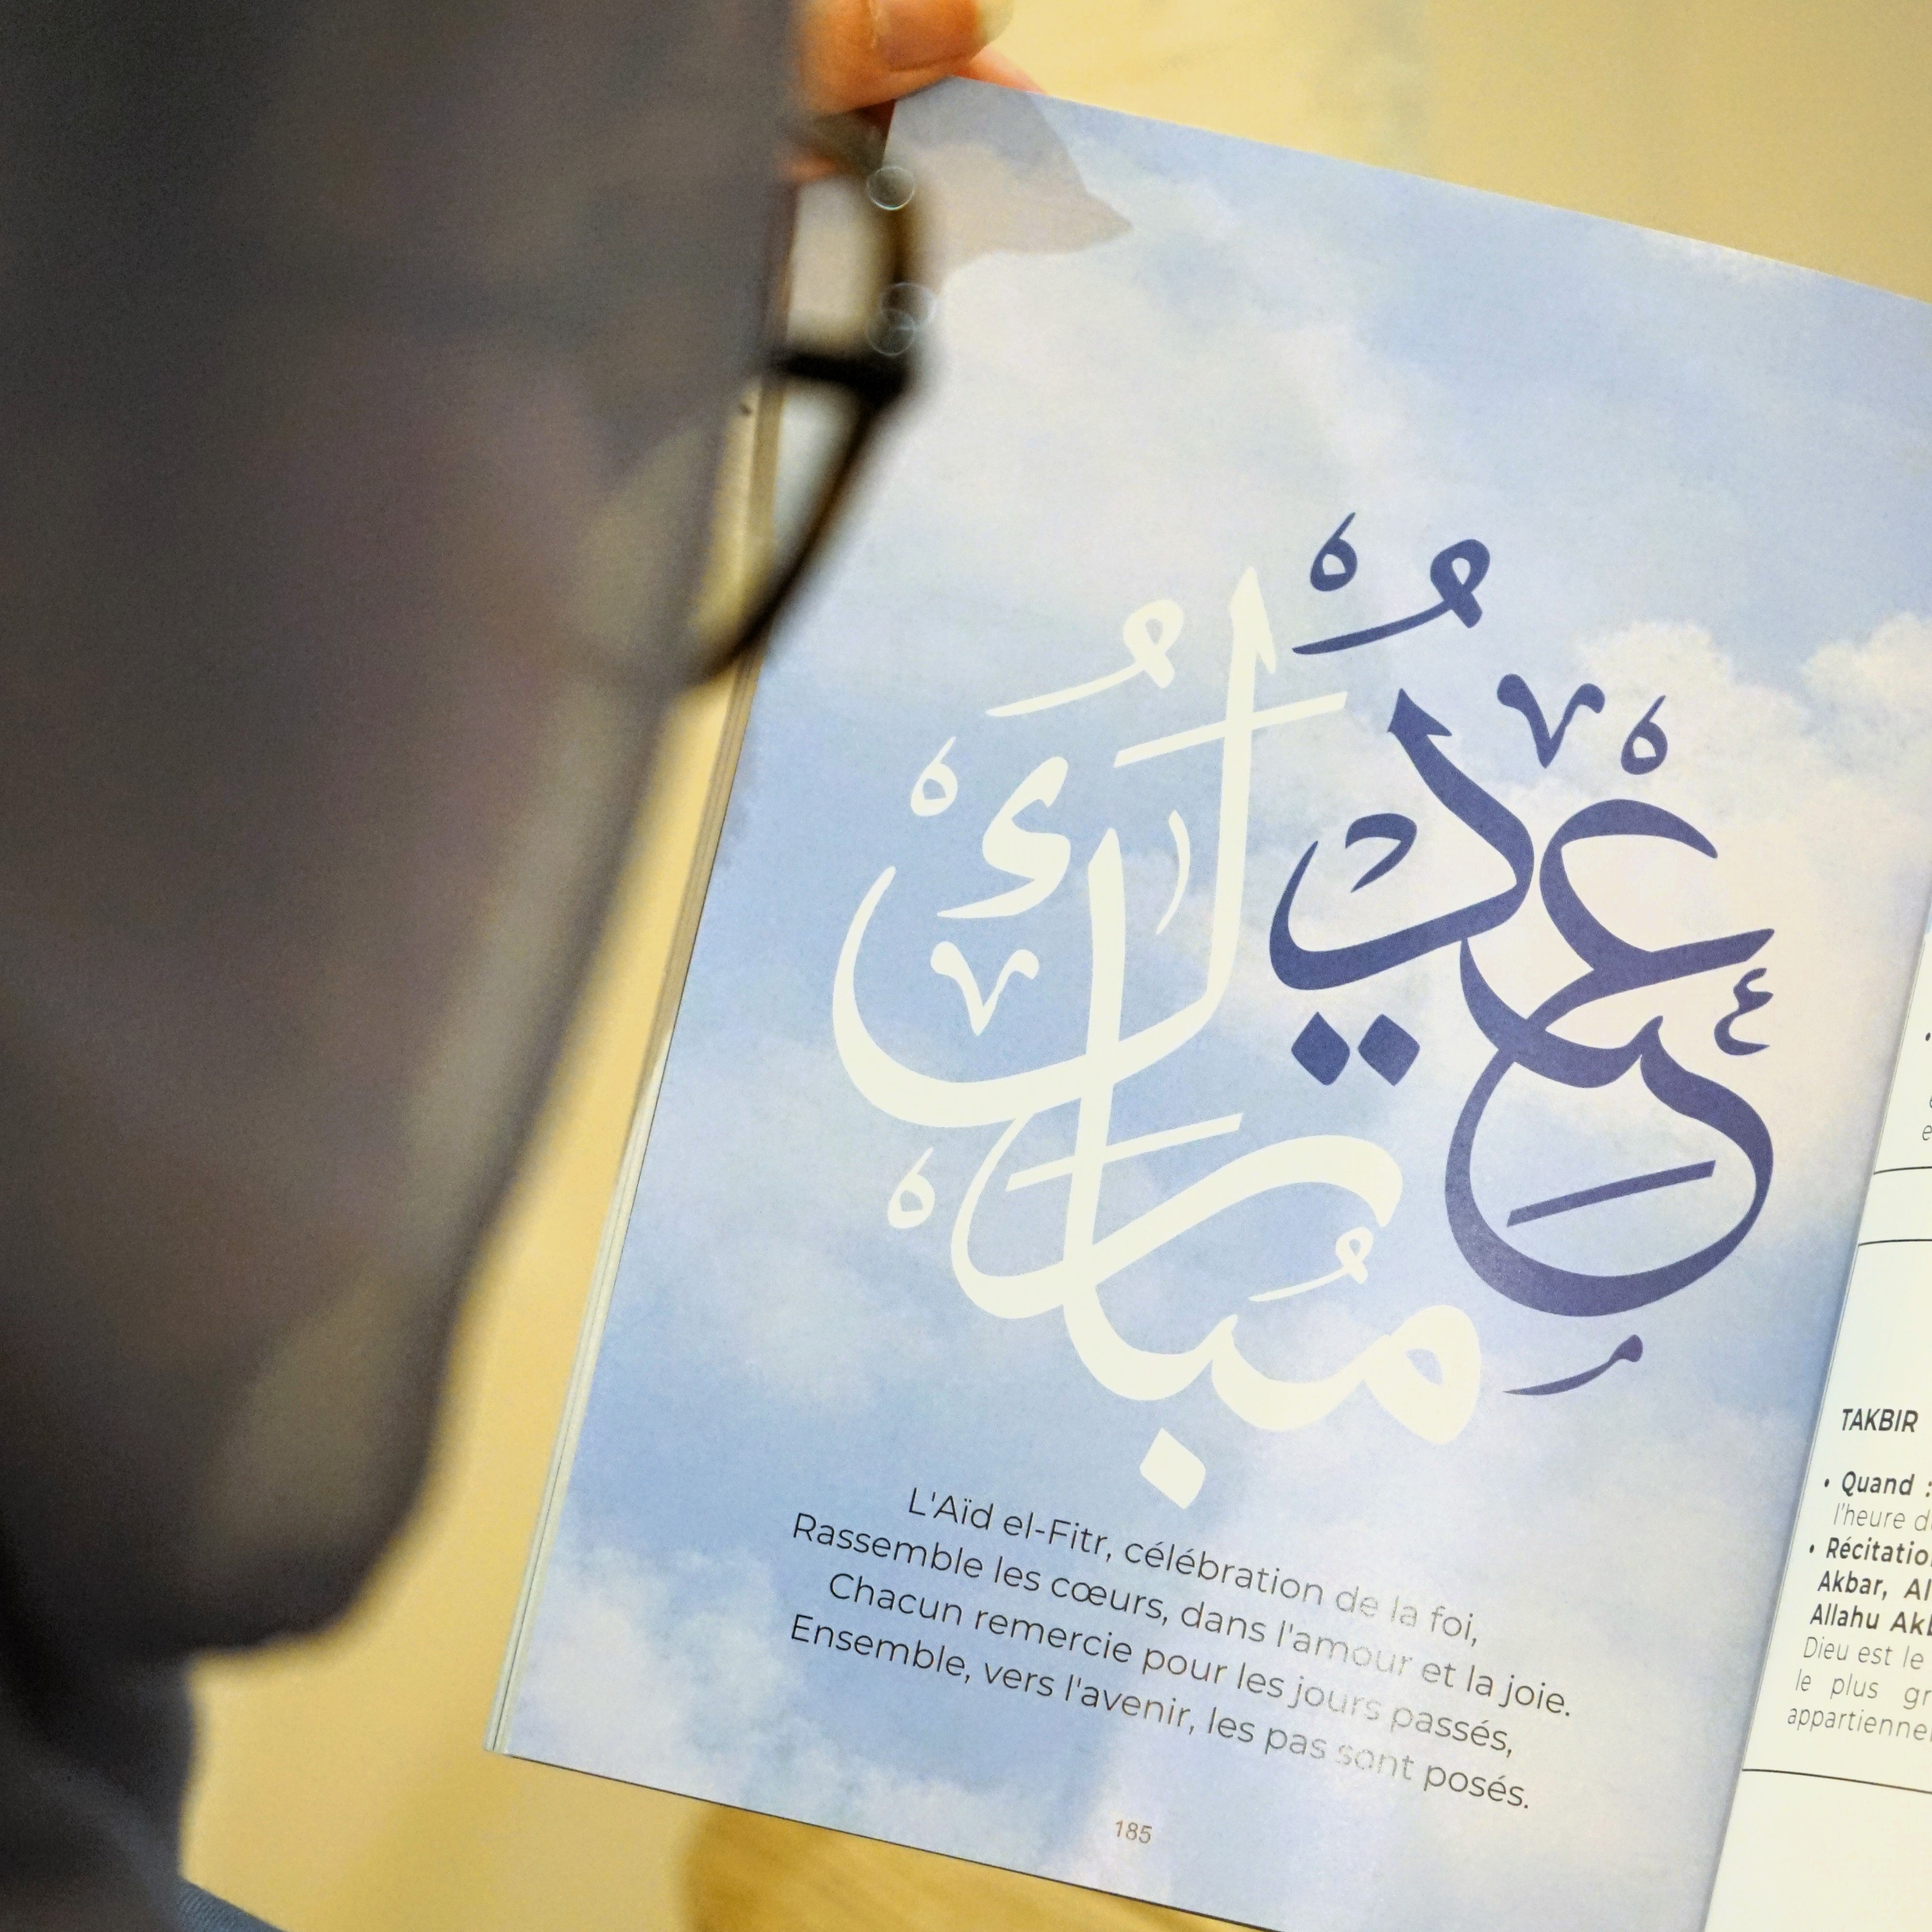 عيد
مبارك
L'Aïd el-Fitr, célébration de la foi,
Rassemble les cœurs, dans l'amour et la joie.
Chacun remercie pour les jours passés,
Ensemble, vers l'avenir, les pas sont posés.
185
TAKBIR
• Quand :
l'heure
• Récitatio
Akbar, Al
Allahu Ak
Dieu est le
le plus gr
appartienne